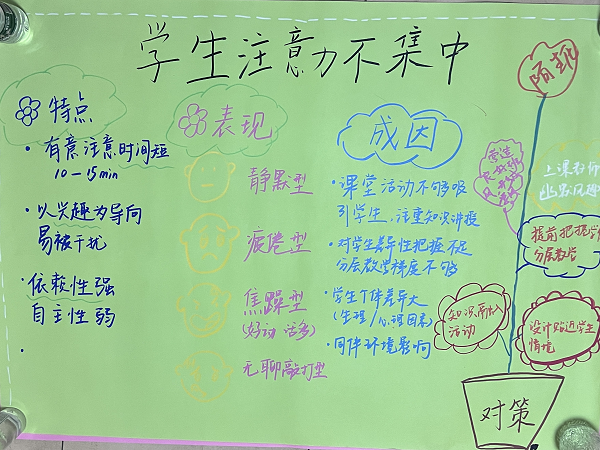 学生注意力不集中
特点
• 有意注意时间短
10—15min
• 以兴趣为导向
易被干扰
• 依赖性强
自主性弱
•
表现
静默型
疲倦型
焦躁型
(好动 话多)
无聊敲打型
成因
• 课堂活动不够吸
引学生，注重知识讲授
• 对学生差异性把握不足
分层教学梯度不够
• 学生个体差异大
(生理/心理因素)
• 同伴环境影响
营造
上课教师
幽默风趣
提前把握学
分层教学
知识融入
活动
设计贴近学生
情境
对策